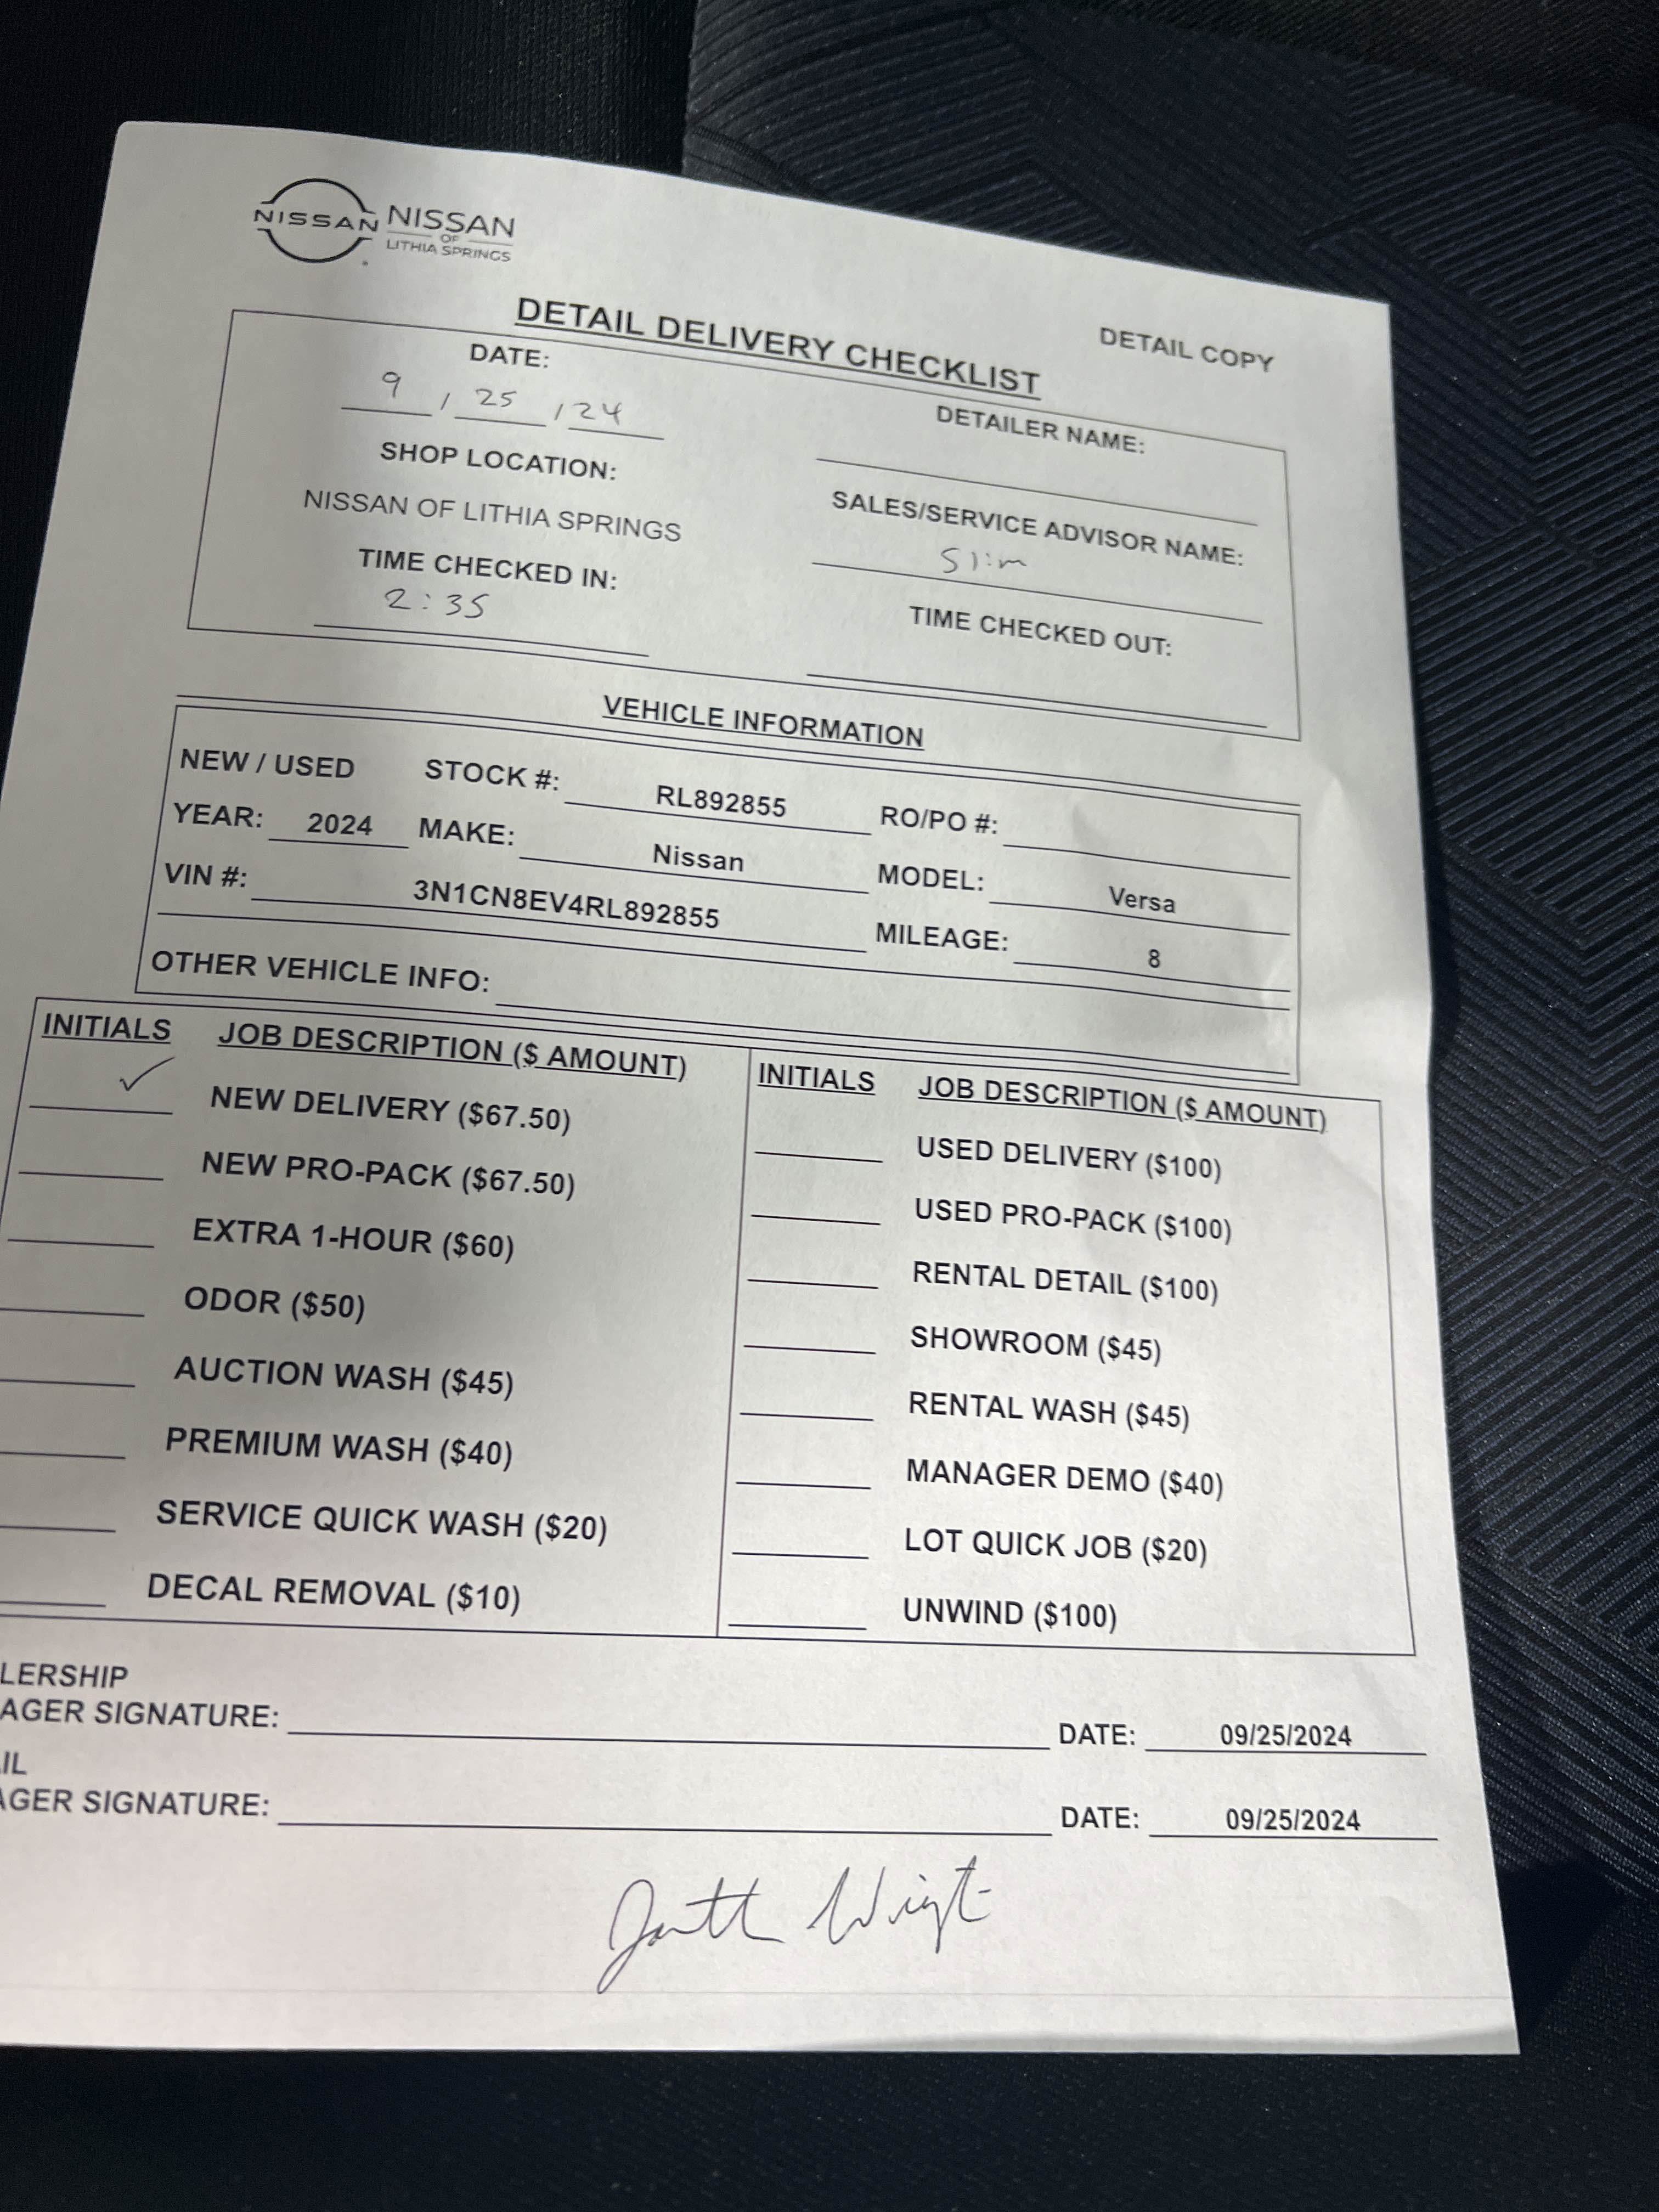 NISSAN
NISSAN
OF
LITHIA SPRINGS
DETAIL DELIVERY CHECKLIST
DETAIL COPY
DATE:
9 / 25 / 24
SHOP LOCATION:
NISSAN OF LITHIA SPRINGS
TIME CHECKED IN:
2:35
DETAILER NAME:
SALES/SERVICE ADVISOR NAME:
Slim
TIME CHECKED OUT:
VEHICLE INFORMATION
NEW / USED STOCK #: RL892855 RO/PO #:
YEAR: 2024 MAKE: Nissan MODEL: Versa
VIN #: 3N1CN8EV4RL892855 MILEAGE: 8
OTHER VEHICLE INFO:
INITIALS JOB DESCRIPTION ($ AMOUNT)
✓ NEW DELIVERY ($67.50)
NEW PRO-PACK ($67.50)
EXTRA 1-HOUR ($60)
ODOR ($50)
AUCTION WASH ($45)
PREMIUM WASH ($40)
SERVICE QUICK WASH ($20)
DECAL REMOVAL ($10)
INITIALS JOB DESCRIPTION ($ AMOUNT)
USED DELIVERY ($100)
USED PRO-PACK ($100)
RENTAL DETAIL ($100)
SHOWROOM ($45)
RENTAL WASH ($45)
MANAGER DEMO ($40)
LOT QUICK JOB ($20)
UNWIND ($100)
LERSHIP
AGER SIGNATURE: DATE: 09/25/2024
IL
AGER SIGNATURE: DATE: 09/25/2024